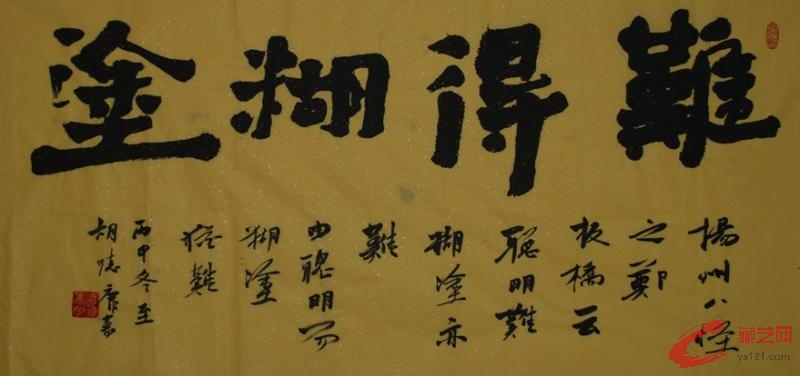 難得糊塗
揚州八怪
之鄭
板橋云
聰明難
糊塗亦
難
由聰明而
糊塗
難
丙申冬至
胡德康書
藏艺网
ys121.com